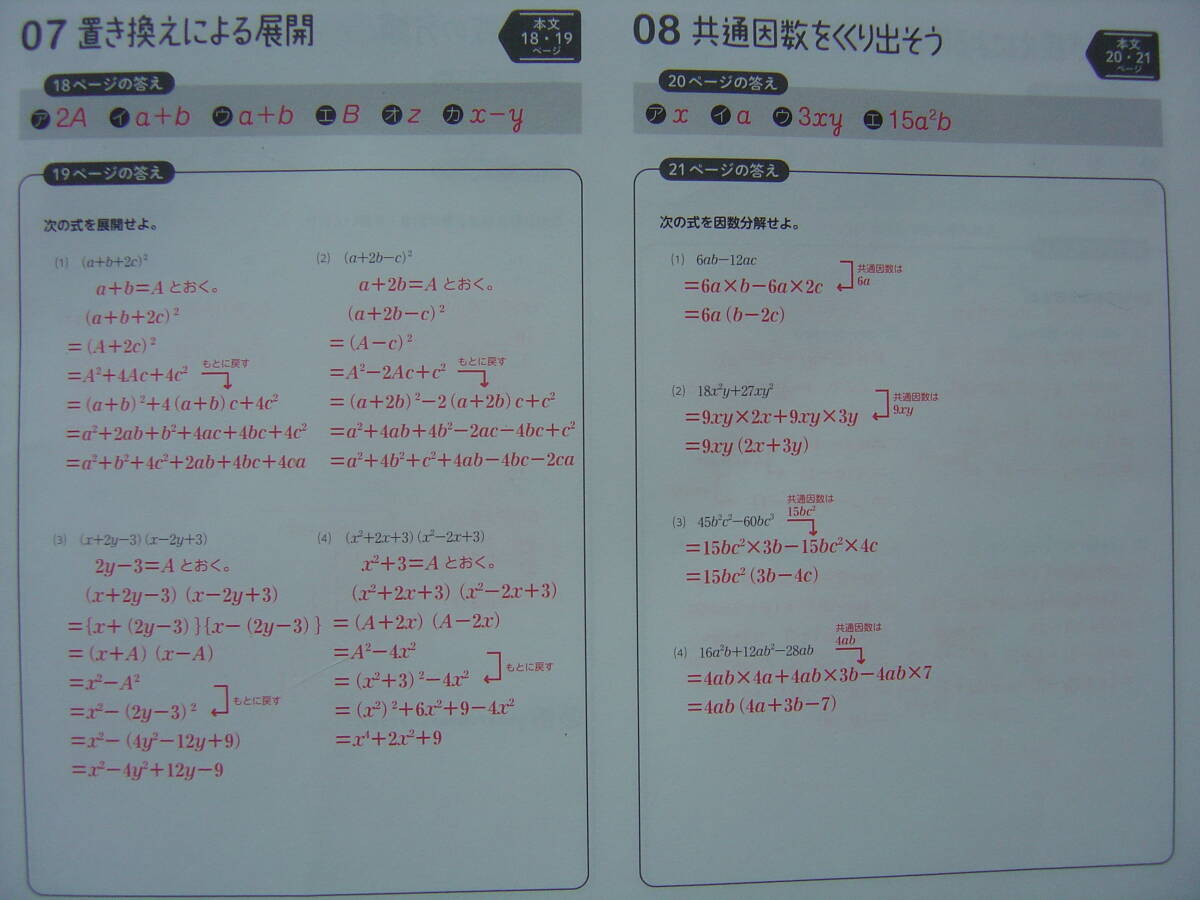 07 置き換えによる展開
本文
18・19
ページ
18ページの答え
ア 2A イ a+b ウ a+b エ B オ z カ x−y
19ページの答え
次の式を展開せよ。
(1) (a+b+2c)²
a+b=Aとおく。
(a+b+2c)²
=(A+2c)²
=A²+4Ac+4c² もとに戻す
=(a+b)²+4(a+b)c+4c²
=a²+2ab+b²+4ac+4bc+4c²
=a²+b²+4c²+2ab+4bc+4ca
(2) (a+2b−c)²
a+2b=Aとおく。
(a+2b−c)²
=(A−c)²
=A²−2Ac+c² もとに戻す
=(a+2b)²−2(a+2b)c+c²
=a²+4ab+4b²−2ac−4bc+c²
=a²+4b²+c²+4ab−4bc−2ca
(3) (x+2y−3)(x−2y+3)
2y−3=Aとおく。
(x+2y−3)(x−2y+3)
={x+(2y−3)}{x−(2y−3)}
=(x+A)(x−A)
=x²−A²
もとに戻す
=x²−(2y−3)²
=x²−(4y²−12y+9)
=x²−4y²+12y−9
(4) (x²+2x+3)(x²−2x+3)
x²+3=Aとおく。
(x²+2x+3)(x²−2x+3)
=(A+2x)(A−2x)
=A²−4x²
もとに戻す
=(x²+3)²−4x²
=(x²)²+6x²+9−4x²
=x⁴+2x²+9
08 共通因数をくくり出そう
本文
20・21
ページ
20ページの答え
ア x イ a ウ 3xy エ 15a²b
21ページの答え
次の式を因数分解せよ。
(1) 6ab−12ac
共通因数は
6a
=6a×b−6a×2c
=6a(b−2c)
(2) 18x²y+27xy²
共通因数は
9xy
=9xy×2x+9xy×3y
=9xy(2x+3y)
共通因数は
15bc²
(3) 45b²c²−60bc³
=15bc²×3b−15bc²×4c
=15bc²(3b−4c)
共通因数は
4ab
(4) 16a²b+12ab²−28ab
=4ab×4a+4ab×3b−4ab×7
=4ab(4a+3b−7)